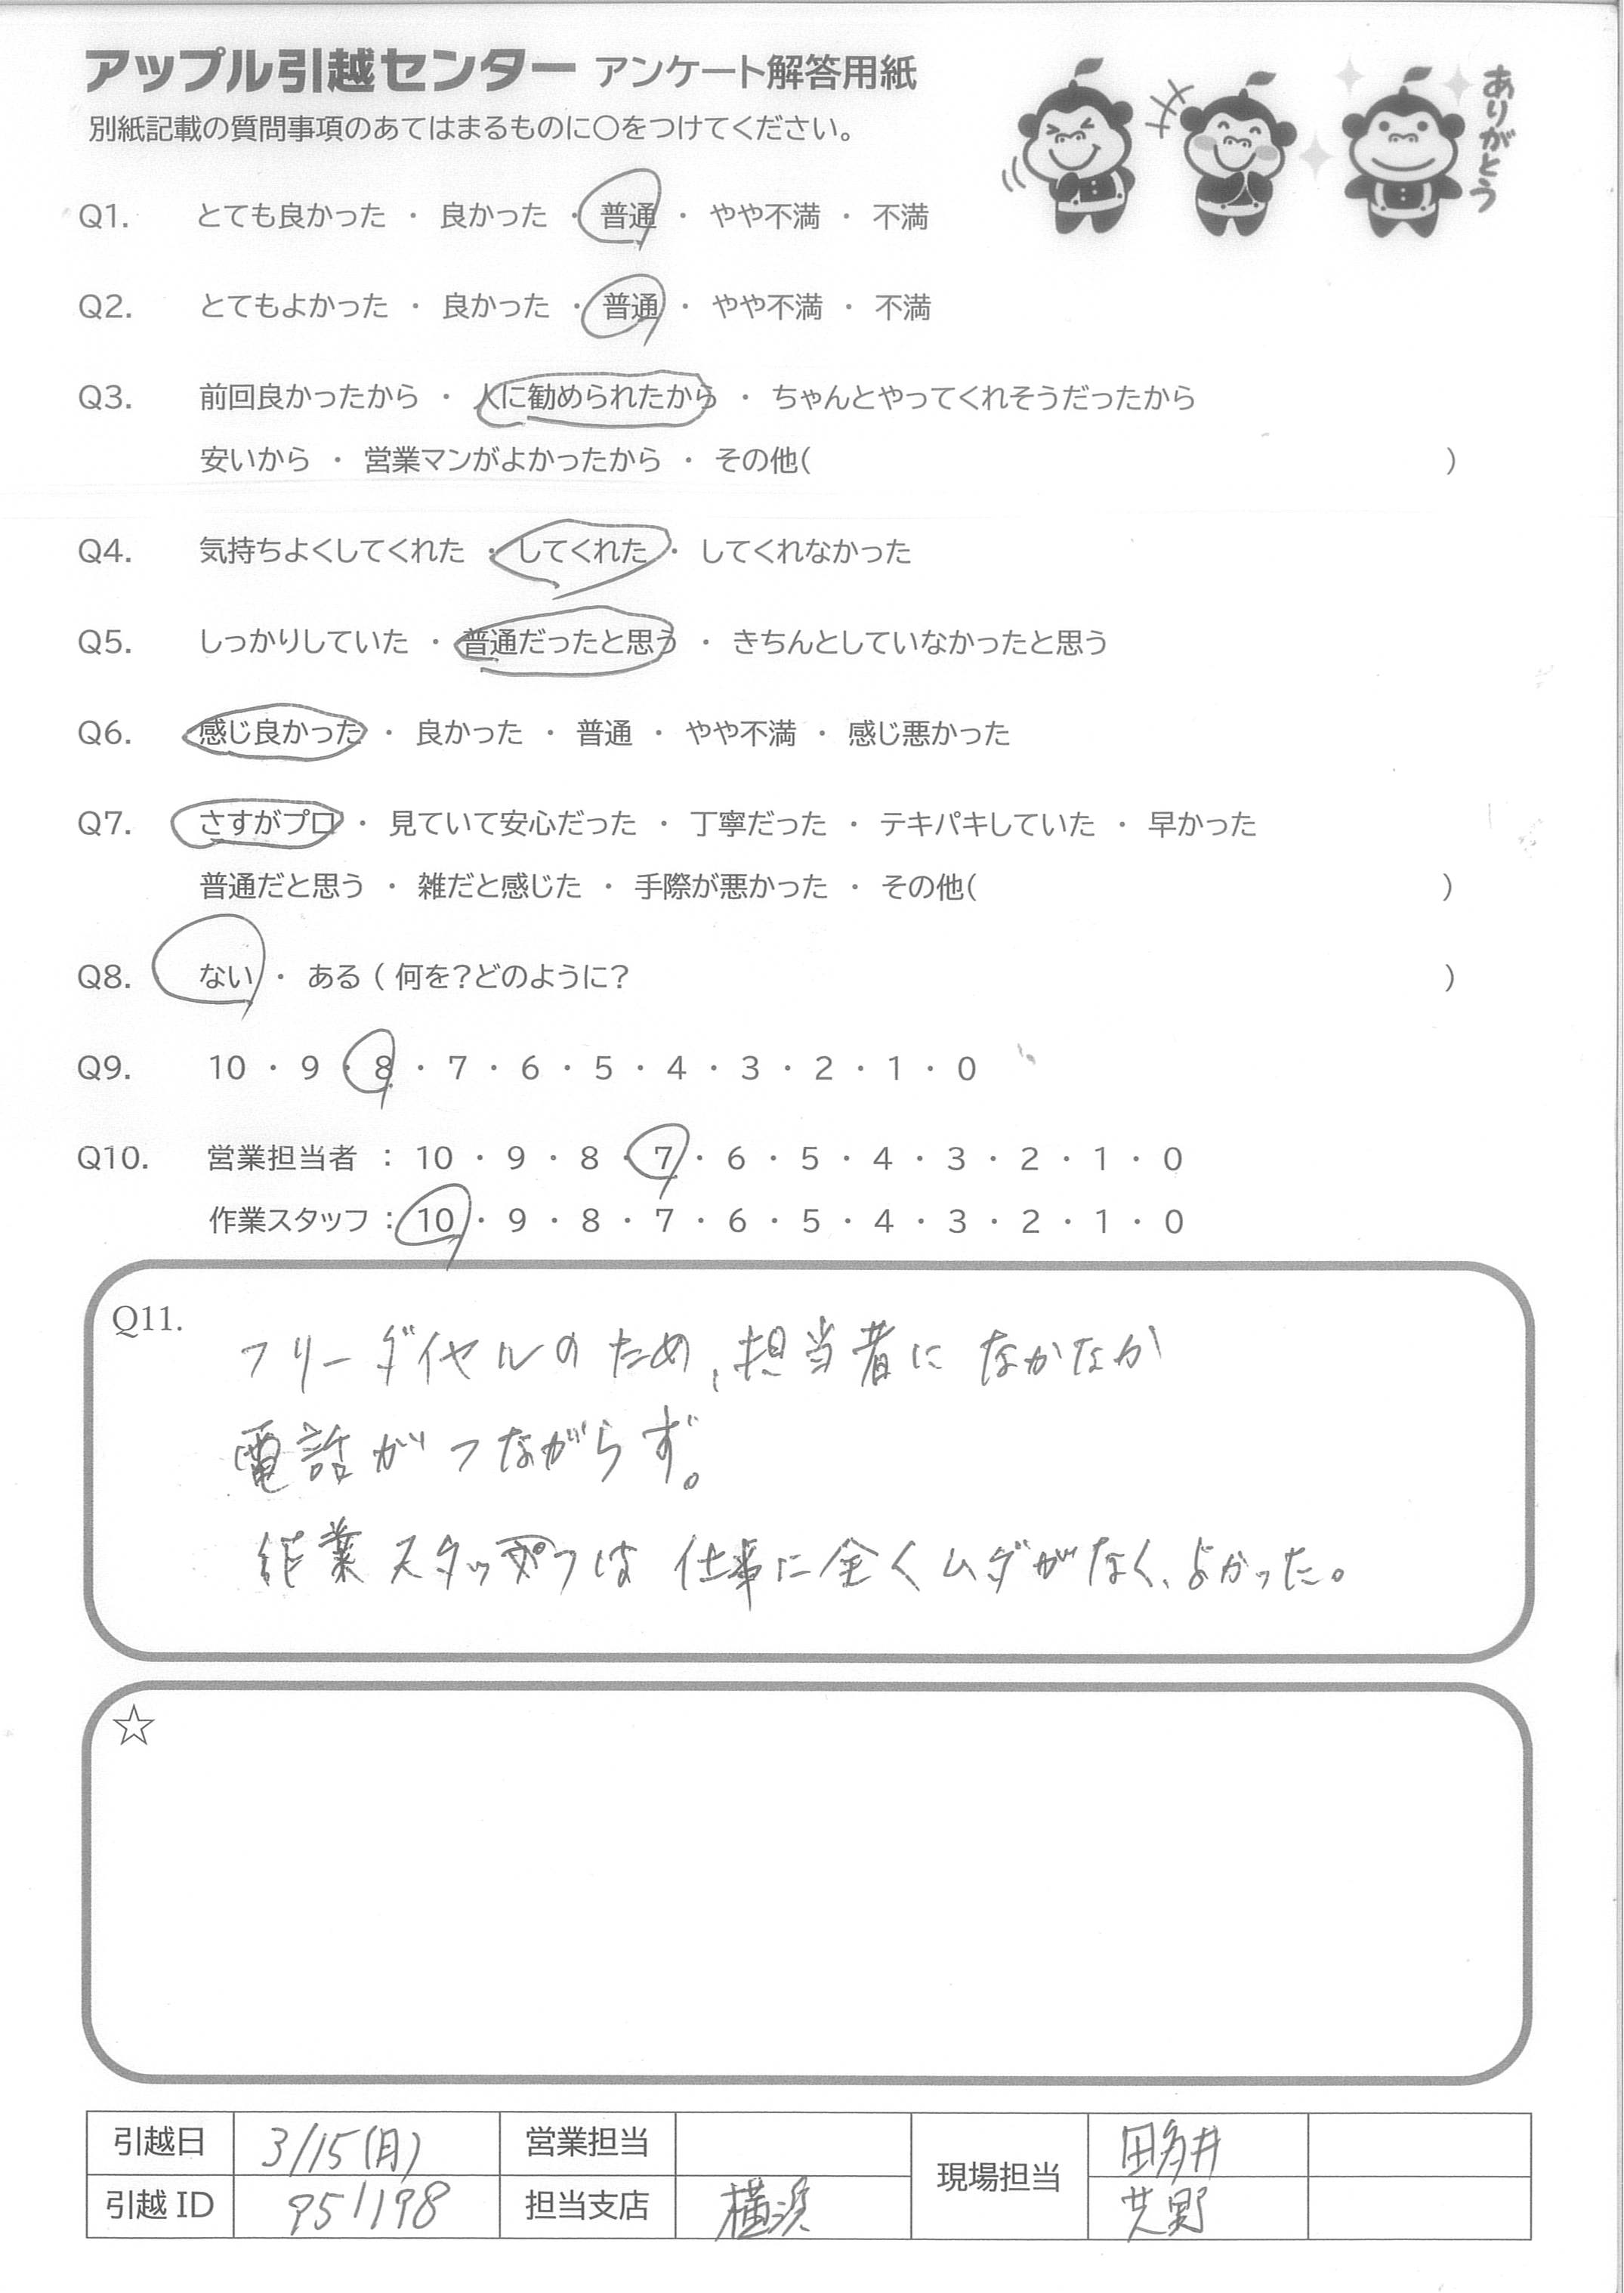 アップル引越センター アンケート解答用紙
別紙記載の質問事項のあてはまるものに〇をつけてください。
ありがとう
Q1. とても良かった ・ 良かった ・ 普通 ・ やや不満 ・ 不満
Q2. とてもよかった ・ 良かった ・ 普通 ・ やや不満 ・ 不満
Q3. 前回良かったから ・ 人に勧められたから ・ ちゃんとやってくれそうだったから
安いから ・ 営業マンがよかったから ・ その他( )
Q4. 気持ちよくしてくれた ・ してくれた ・ してくれなかった
Q5. しっかりしていた ・ 普通だったと思う ・ きちんとしていなかったと思う
Q6. 感じ良かった ・ 良かった ・ 普通 ・ やや不満 ・ 感じ悪かった
Q7. さすがプロ ・ 見ていて安心だった ・ 丁寧だった ・ テキパキしていた ・ 早かった
普通だと思う ・ 雑だと感じた ・ 手際が悪かった ・ その他( )
Q8. ない ・ ある ( 何を？どのように？ )
Q9. 10 ・ 9 ・ 8 ・ 7 ・ 6 ・ 5 ・ 4 ・ 3 ・ 2 ・ 1 ・ 0
Q10. 営業担当者 ： 10 ・ 9 ・ 8 ・ 7 ・ 6 ・ 5 ・ 4 ・ 3 ・ 2 ・ 1 ・ 0
作業スタッフ ： 10 ・ 9 ・ 8 ・ 7 ・ 6 ・ 5 ・ 4 ・ 3 ・ 2 ・ 1 ・ 0
Q11. フリーダイヤルのため、担当者に なかなか
電話がつながらず。
作業スタッフは 仕事に全くムダがなく、よかった。
☆
引越日 3/15(月) 営業担当 現場担当 田多井
引越ID 951198 担当支店 横浜